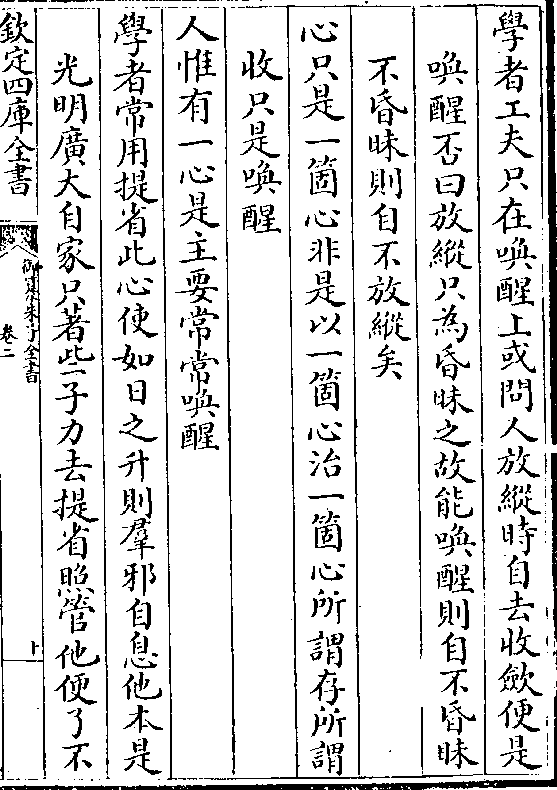 學者工夫只在喚醒上或問人放縱時自去收斂便是
喚醒否曰放縱只為昏昧之故能喚醒則自不昏昧
不昏昧則自不放縱矣
心只是一箇心非是以一箇心治一箇心所謂存所謂
收只是喚醒
人惟有一心是主要常常喚醒
學者常用提省此心使如日之升則羣邪自息他本是
光明廣大自家只著些子力去提省照管他便了不
欽定四庫全書
御纂朱子全書
卷二
十